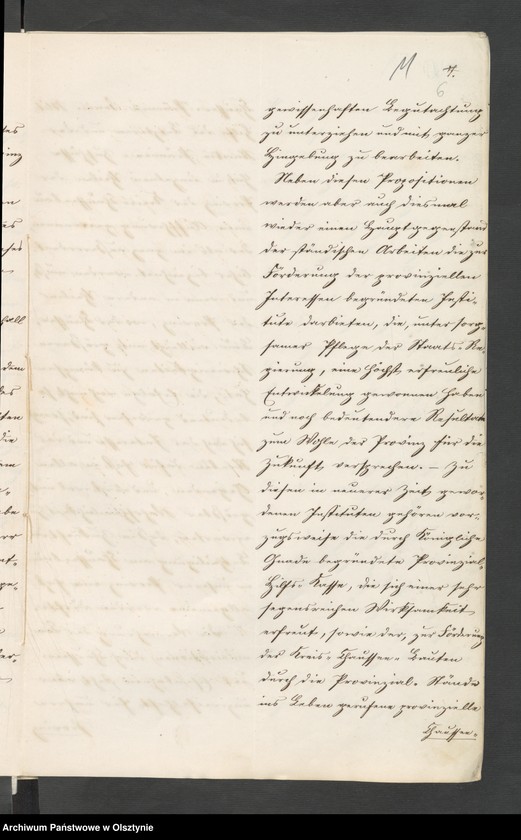 11 4.
6
gewissenhaften Begutachtung
zu unterziehen und mit ganzer
Hingebung zu bearbeiten.
Neben diesen Propositionen
werden aber auch diesmal
wieder einen Hauptgegenstand
der ständischen Arbeiten die zur
Förderung der provinziellen
Interessen begründeten Insti-
tute darbieten, die, unter sorg-
samer Pflege der Staats-Re-
gierung, eine höchst erfreuliche
Entwickelung gewonnen haben
und noch bedeutendere Resultate
zum Wohle der Provinz für die
Zukunft versprechen. — Zu
diesen in neuerer Zeit gewor-
denen Instituten gehören vor-
zugsweise die durch Königliche
Gnade begründete Provinzial-
Hilfs-Kasse, die sich einer sehr
segensreichen Wirksamkeit
erfreut, sowie der, zur Förderung
der Kreis-Chaussee-Bauten
durch die Provinzial-Stände
ins Leben gerufene provinzielle
Chaussee-
Archiwum Państwowe w Olsztynie